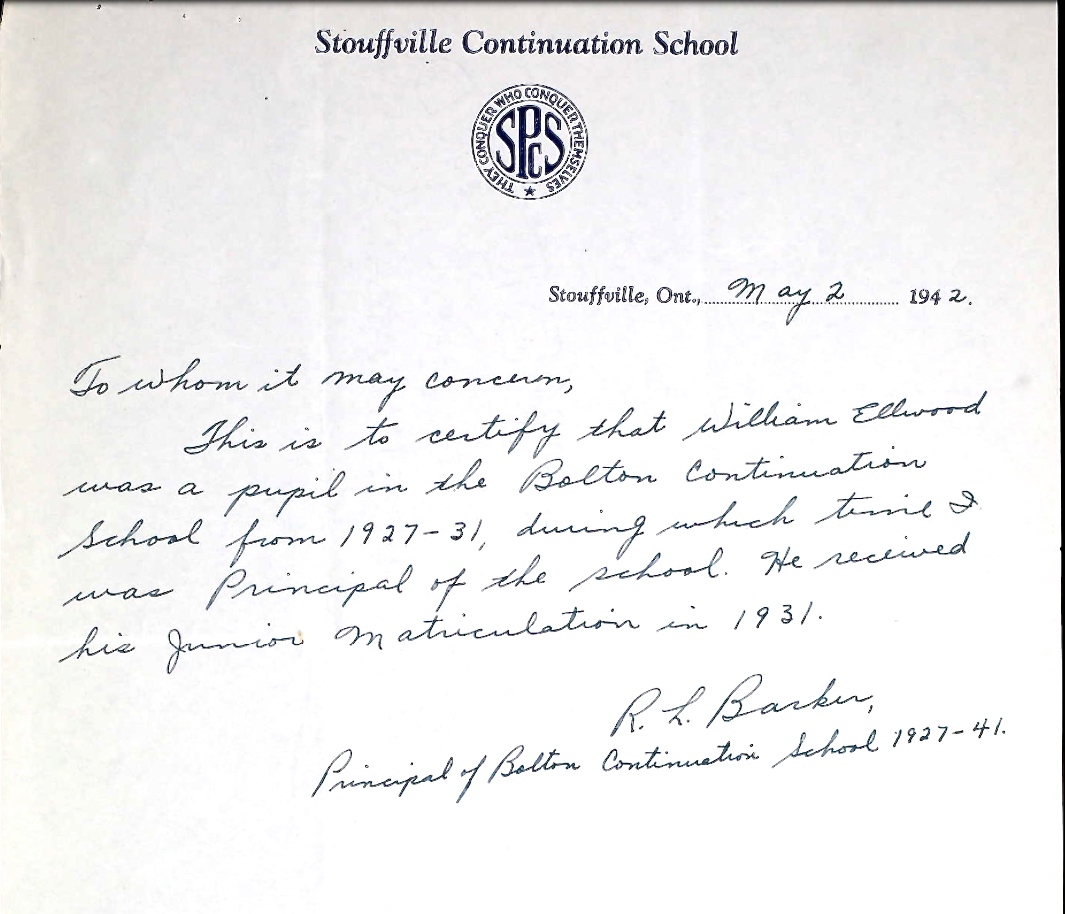 Stouffville Continuation School
THEY CONQUER WHO CONQUER THEMSELVES
SPCS
Stouffville, Ont., May 2 1942.
To whom it may concern,
This is to certify that William Ellwood
was a pupil in the Bolton Continuation
School from 1927-31, during which time I
was Principal of the school. He received
his Junior Matriculation in 1931.
R. L. Barker,
Principal of Bolton Continuation School 1927-41.